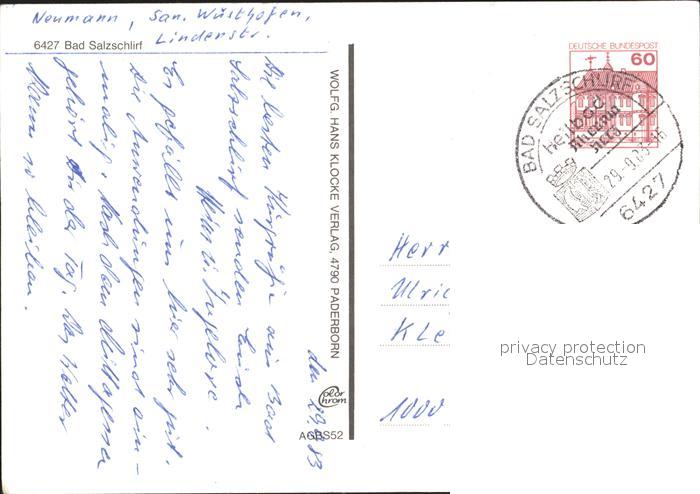 Neumann, San. Wüsthofen,
Lindenstr.
6427 Bad Salzschlirf
den 29.9.83
Die besten Kurgrüße aus Bad
Salzschlirf senden Euch
Hans u. Ingeborg.
Es gefällt uns hier sehr gut.
Die Anwendungen sind ein-
malig. Nach dem Mittagessen
gehört der Tag. Das Wetter
kann so bleiben.
WOLFG. HANS KLOCKE VERLAG, 4790 PADERBORN
color
chrom
AGBS52
DEUTSCHE BUNDESPOST
60
BAD SALZSCHLIRF
Heilbad
Rheuma
29.-9.83
6427
Herr
Ulric
Kle
1000
privacy protection
Datenschutz